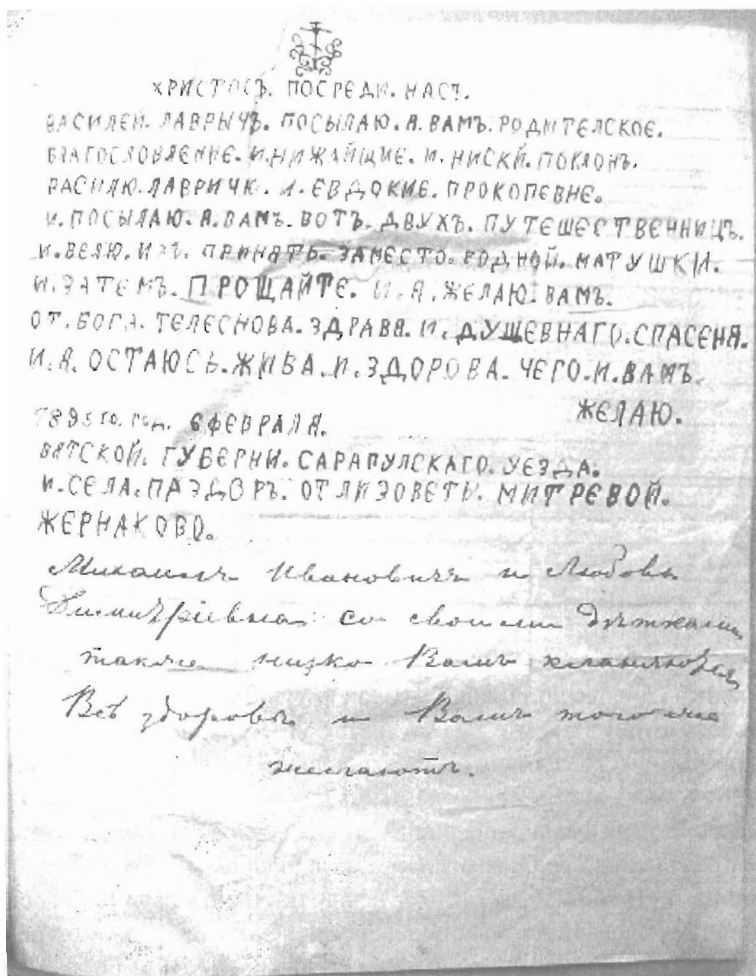 ХРИСТОСЪ. ПОСРЕДИ. НАСЪ.
ВАСИЛЕЙ. ЛАВРЫЧЪ. ПОСЫЛАЮ. Я. ВАМЪ. РОДИТЕЛСКОЕ.
БЛАГОСЛОВЛЕНИЕ. И. НИЖАЙЩИЕ. И. НИСКЙ. ПОКЛОНЪ.
ВАСИЛЮ. ЛАВРИЧЮ. И. ЕВДОКИЕ. ПРОКОПЕВНЕ.
И. ПОСЫЛАЮ. Я. ВАМЪ. ВОТЪ. ДВУХЪ. ПУТЕШЕСТВЕННИЦЪ.
И. ВЕЛЮ. ИХЪ. ПРИНЯТЬ. ЗАМЕСТО. РОДНОЙ. МАТУШКИ.
И. ЗАТЕМЪ. ПРОЩАЙТЕ. И. Я. ЖЕЛАЮ. ВАМЪ.
ОТ. БОГА. ТЕЛЕСНОВА. ЗДРАВЯ. И. ДУШЕВНАГО. СПАСЕНЯ.
И. Я. ОСТАЮСЬ. ЖИВА. И. ЗДОРОВА. ЧЕГО. И. ВАМЪ.
ЖЕЛАЮ.
1895 го. год. 6 ФЕВРАЛЯ.
ВЯТСКОЙ. ГУБЕРНИ. САРАПУЛСКАГО. УЕЗДА.
И. СЕЛА. ПАЗДЕРЪ. ОТ ЛИЗОВЕТЫ. МИТРЕВОЙ.
ЖЕРНАКОВО.
Михаилъ Ивановичъ и Любовь
Димитріевна со своими дѣтками
также низко Вамъ кланяются
Всѣ здоровы и Вамъ того же
желаютъ.